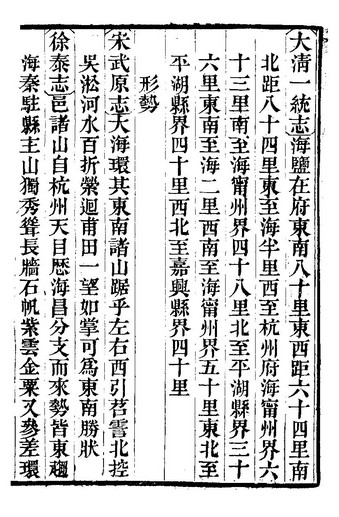 大淸一統志海鹽在府東南八十里東西距六十四里南
北距八十四里東至海半里西至杭州府海甯州界六
十三里南至海甯州界四十八里北至平湖縣界三十
六里東南至海二里西南至海甯州界五十里東北至
平湖縣界四十里西北至嘉興縣界四十里
形勢
宋武原志大海環其東南諸山踞乎左右西引苕霅北控
吳淞河水百折縈迴莆田一望如掌可為東南勝狀
徐泰志邑諸山自杭州天目歷海昌分支而來勢皆東趨
海秦駐縣主山獨秀聳長牆石帆紫雲金粟又參差環